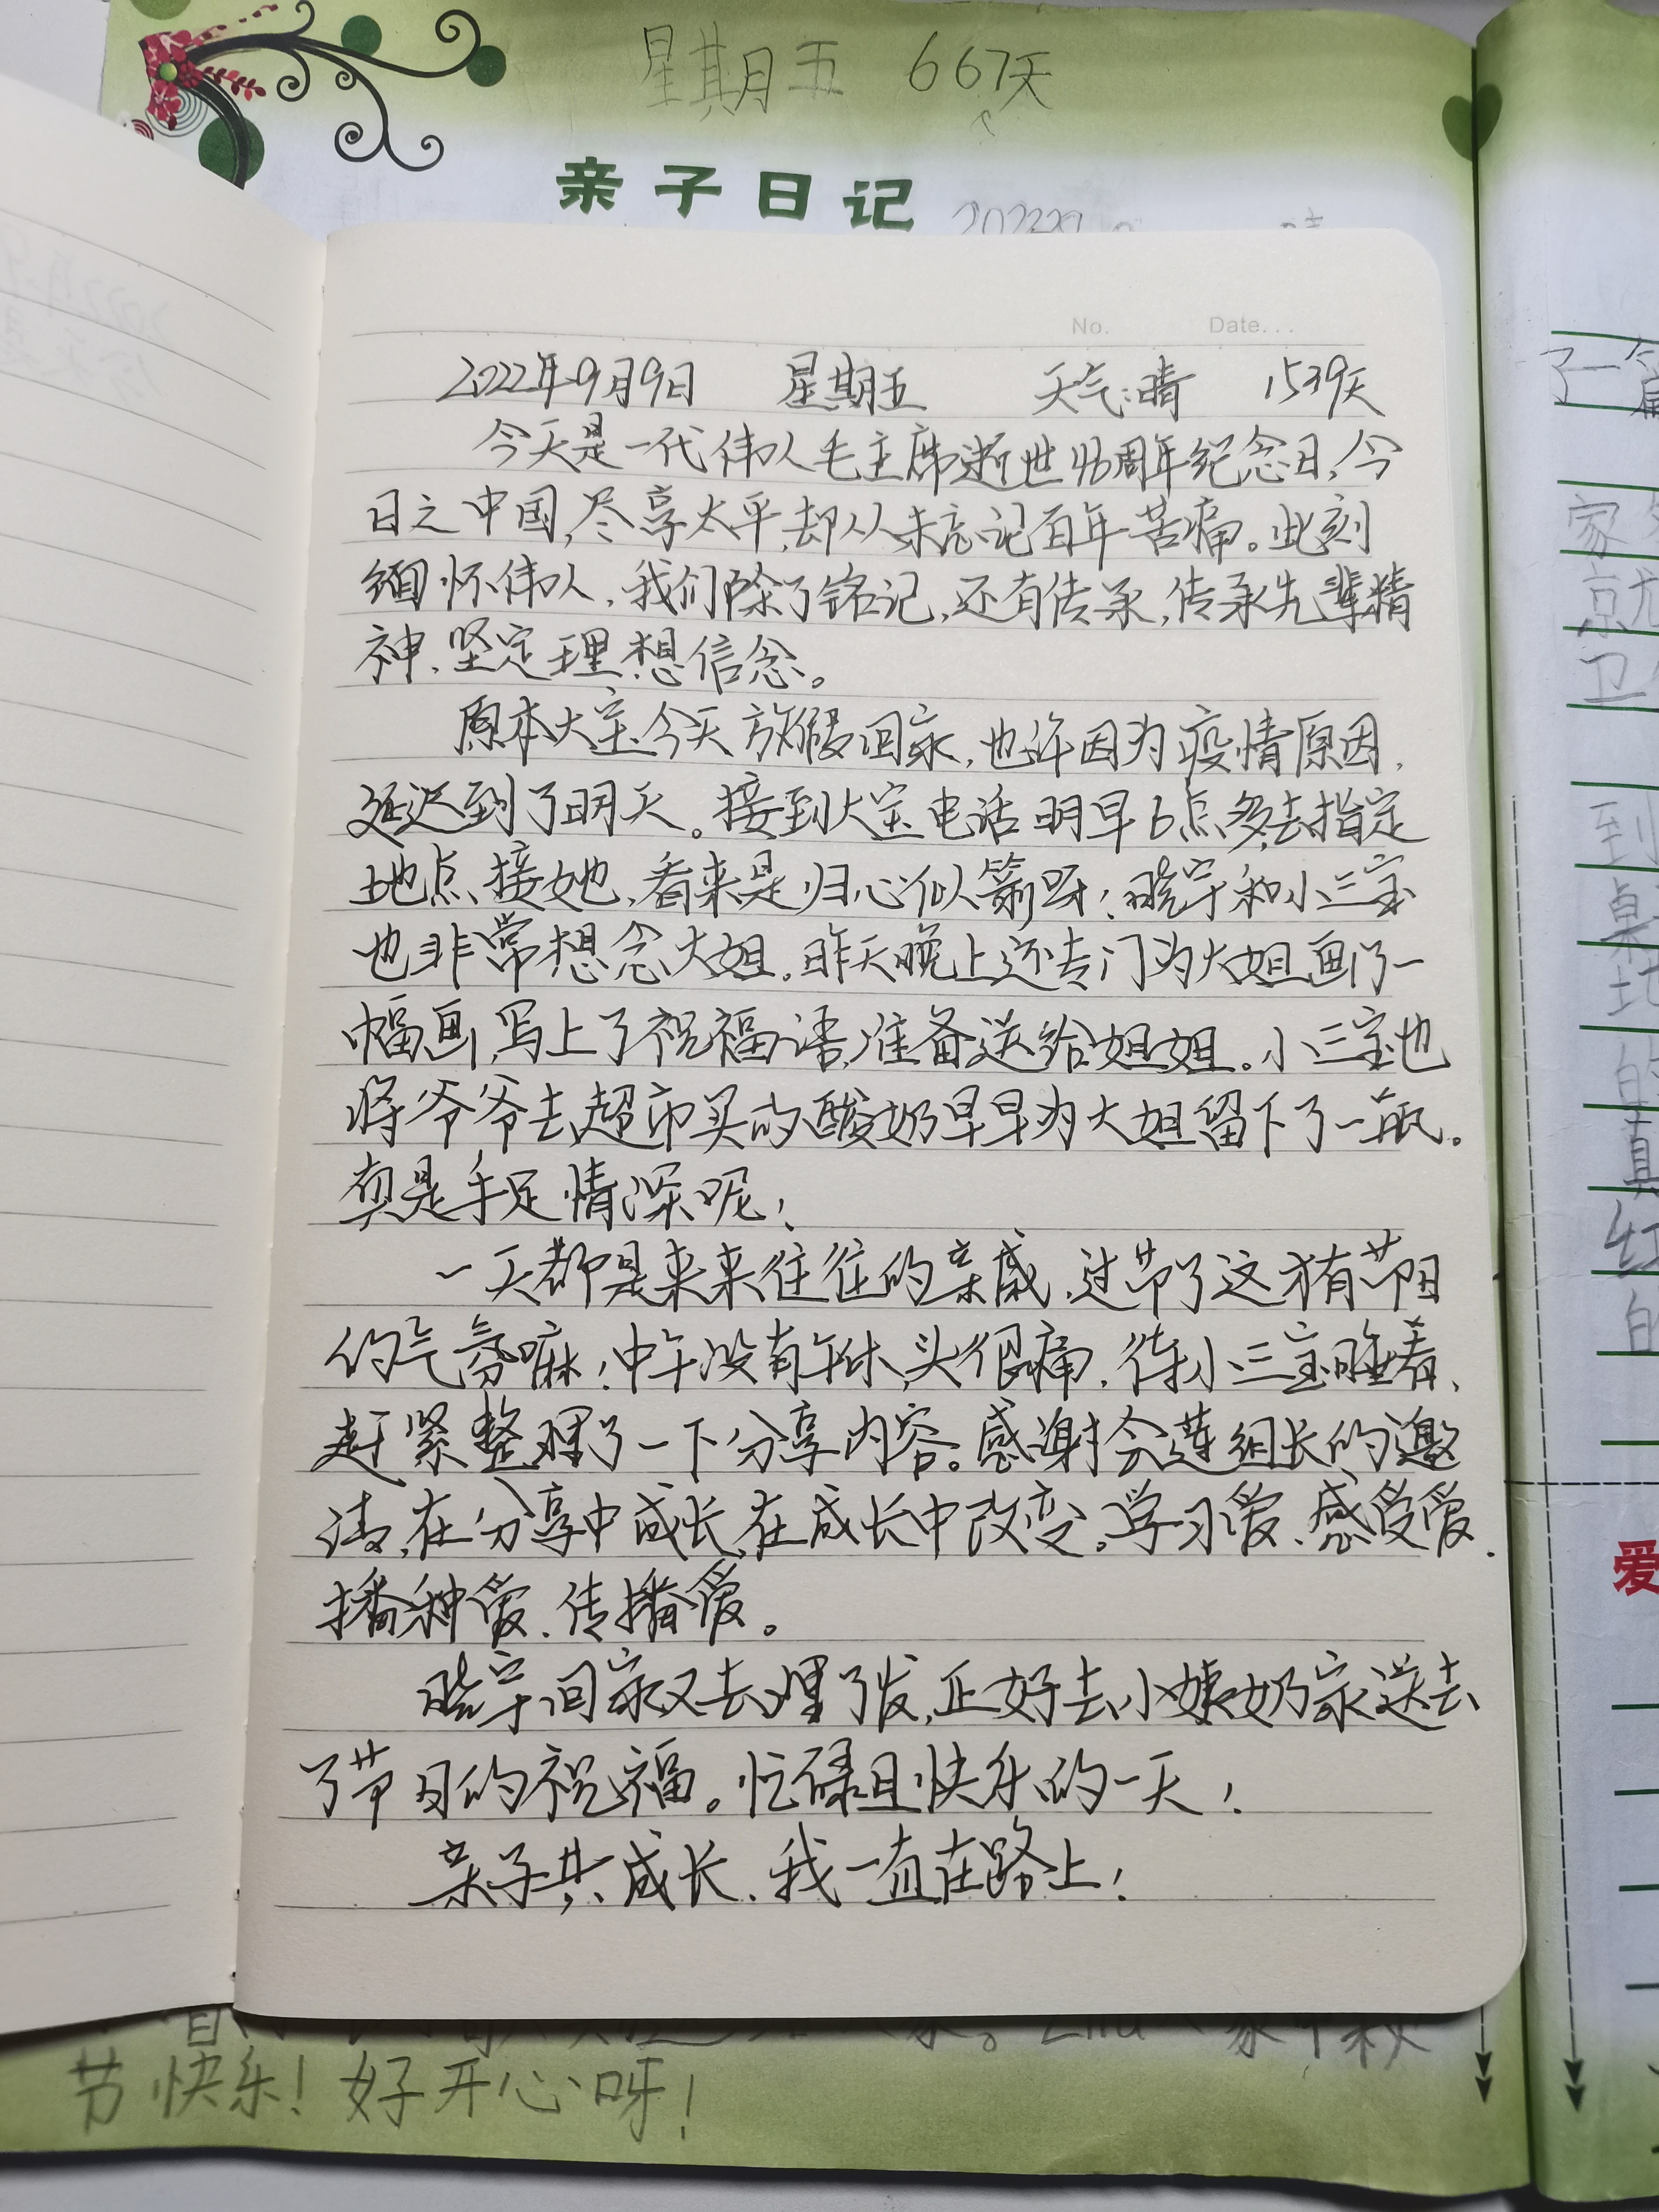 星期五 667天
亲子日记
No. Date...
2022年9月9日 星期五 天气:晴 1539天
今天是一代伟人毛主席逝世46周年纪念日,今
日之中国,尽享太平,却从未忘记百年苦痛。此刻
缅怀伟人,我们除了铭记,还有传承,传承先辈精
神、坚定理想信念。
原本大宝今天放假回家,也许因为疫情原因,
延迟到了明天。接到大宝电话明早6点多去指定
地点接她,看来是归心似箭呀!晓宇和小三宝
也非常想念大姐。昨天晚上还专门为大姐画了一
幅画,写上了祝福语,准备送给姐姐。小三宝也
将爷爷去超市买的酸奶早早为大姐留下了一瓶。
真是手足情深呢!
一天都是来来往往的亲戚,过节了这才有节日
的气氛嘛!中午没有午休,头很痛,待小三宝睡着、
赶紧整理了一下分享内容。感谢会莲组长的邀
请,在分享中成长,在成长中改变。学习爱、感受爱、
播种爱、传播爱。
晓宇回家又去理了发,正好去小姨奶家送去
了节日的祝福。忙碌且快乐的一天!
亲子共成长,我一直在路上!
节快乐!好开心呀!
了一篇
家
京尤
卫
到
桌
地
的
真
红
的
爱